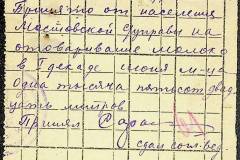 Принято от населения
Мостовской Управы на
отоваривание молоко
в I декаде июня м-ца
одна тысяча пятьсот двад
цать литров
Принял